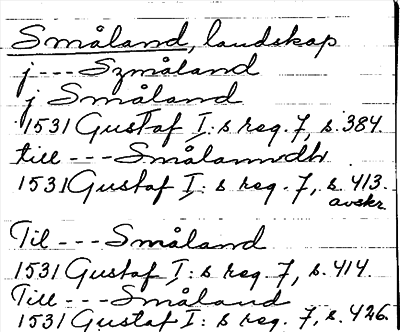 Småland, landskap
j --- Szmåland
j Småland
1531 Gustaf I:s reg. 7, s. 384.
till --- Smålanndh
1531 Gustaf I:s reg. 7, s. 413.
avskr.
Til --- Småland
1531 Gustaf I:s reg. 7, s. 414.
Till --- Småland
1531 Gustaf I:s reg. 7, s. 426.